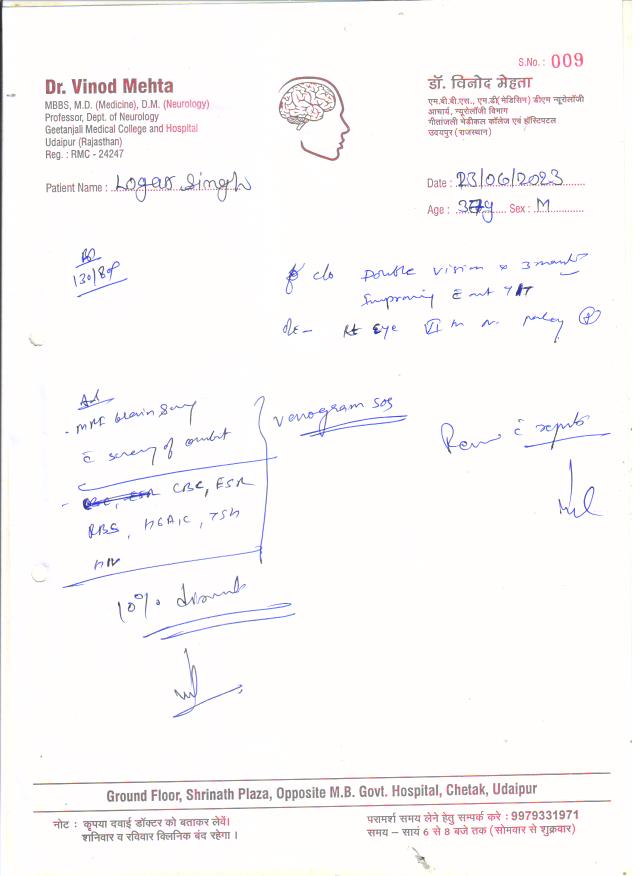 S.No.: 009
Dr. Vinod Mehta
MBBS, M.D. (Medicine), D.M. (Neurology)
Professor, Dept. of Neurology
Geetanjali Medical College and Hospital
Udaipur (Rajasthan)
Reg. : RMC - 24247
डॉ. विनोद मेहता
एम.बी.बी.एस., एम.डी(मेडिसिन) डीएम न्यूरोलॉजी
आचार्य, न्यूरोलॉजी विभाग
गीतांजली मेडीकल कॉलेज एवं हॉस्पिटल
उदयपुर (राजस्थान)
Patient Name : Logar Singh
Date : 23/06/2023
Age : 37y Sex : M
130/80
c/o Double vision x 3 month
Improving
Rt eye VI n. palsy +
MRI brain
venogram SOS
CBC, ESR
RBS, HbA1C, TSH
HIV
10% discount
Ground Floor, Shrinath Plaza, Opposite M.B. Govt. Hospital, Chetak, Udaipur
नोट : कृपया दवाई डॉक्टर को बताकर लेवें।
शनिवार व रविवार क्लिनिक बंद रहेगा ।
परामर्श समय लेने हेतु सम्पर्क करे : 9979331971
समय – सायं 6 से 8 बजे तक (सोमवार से शुक्रवार)